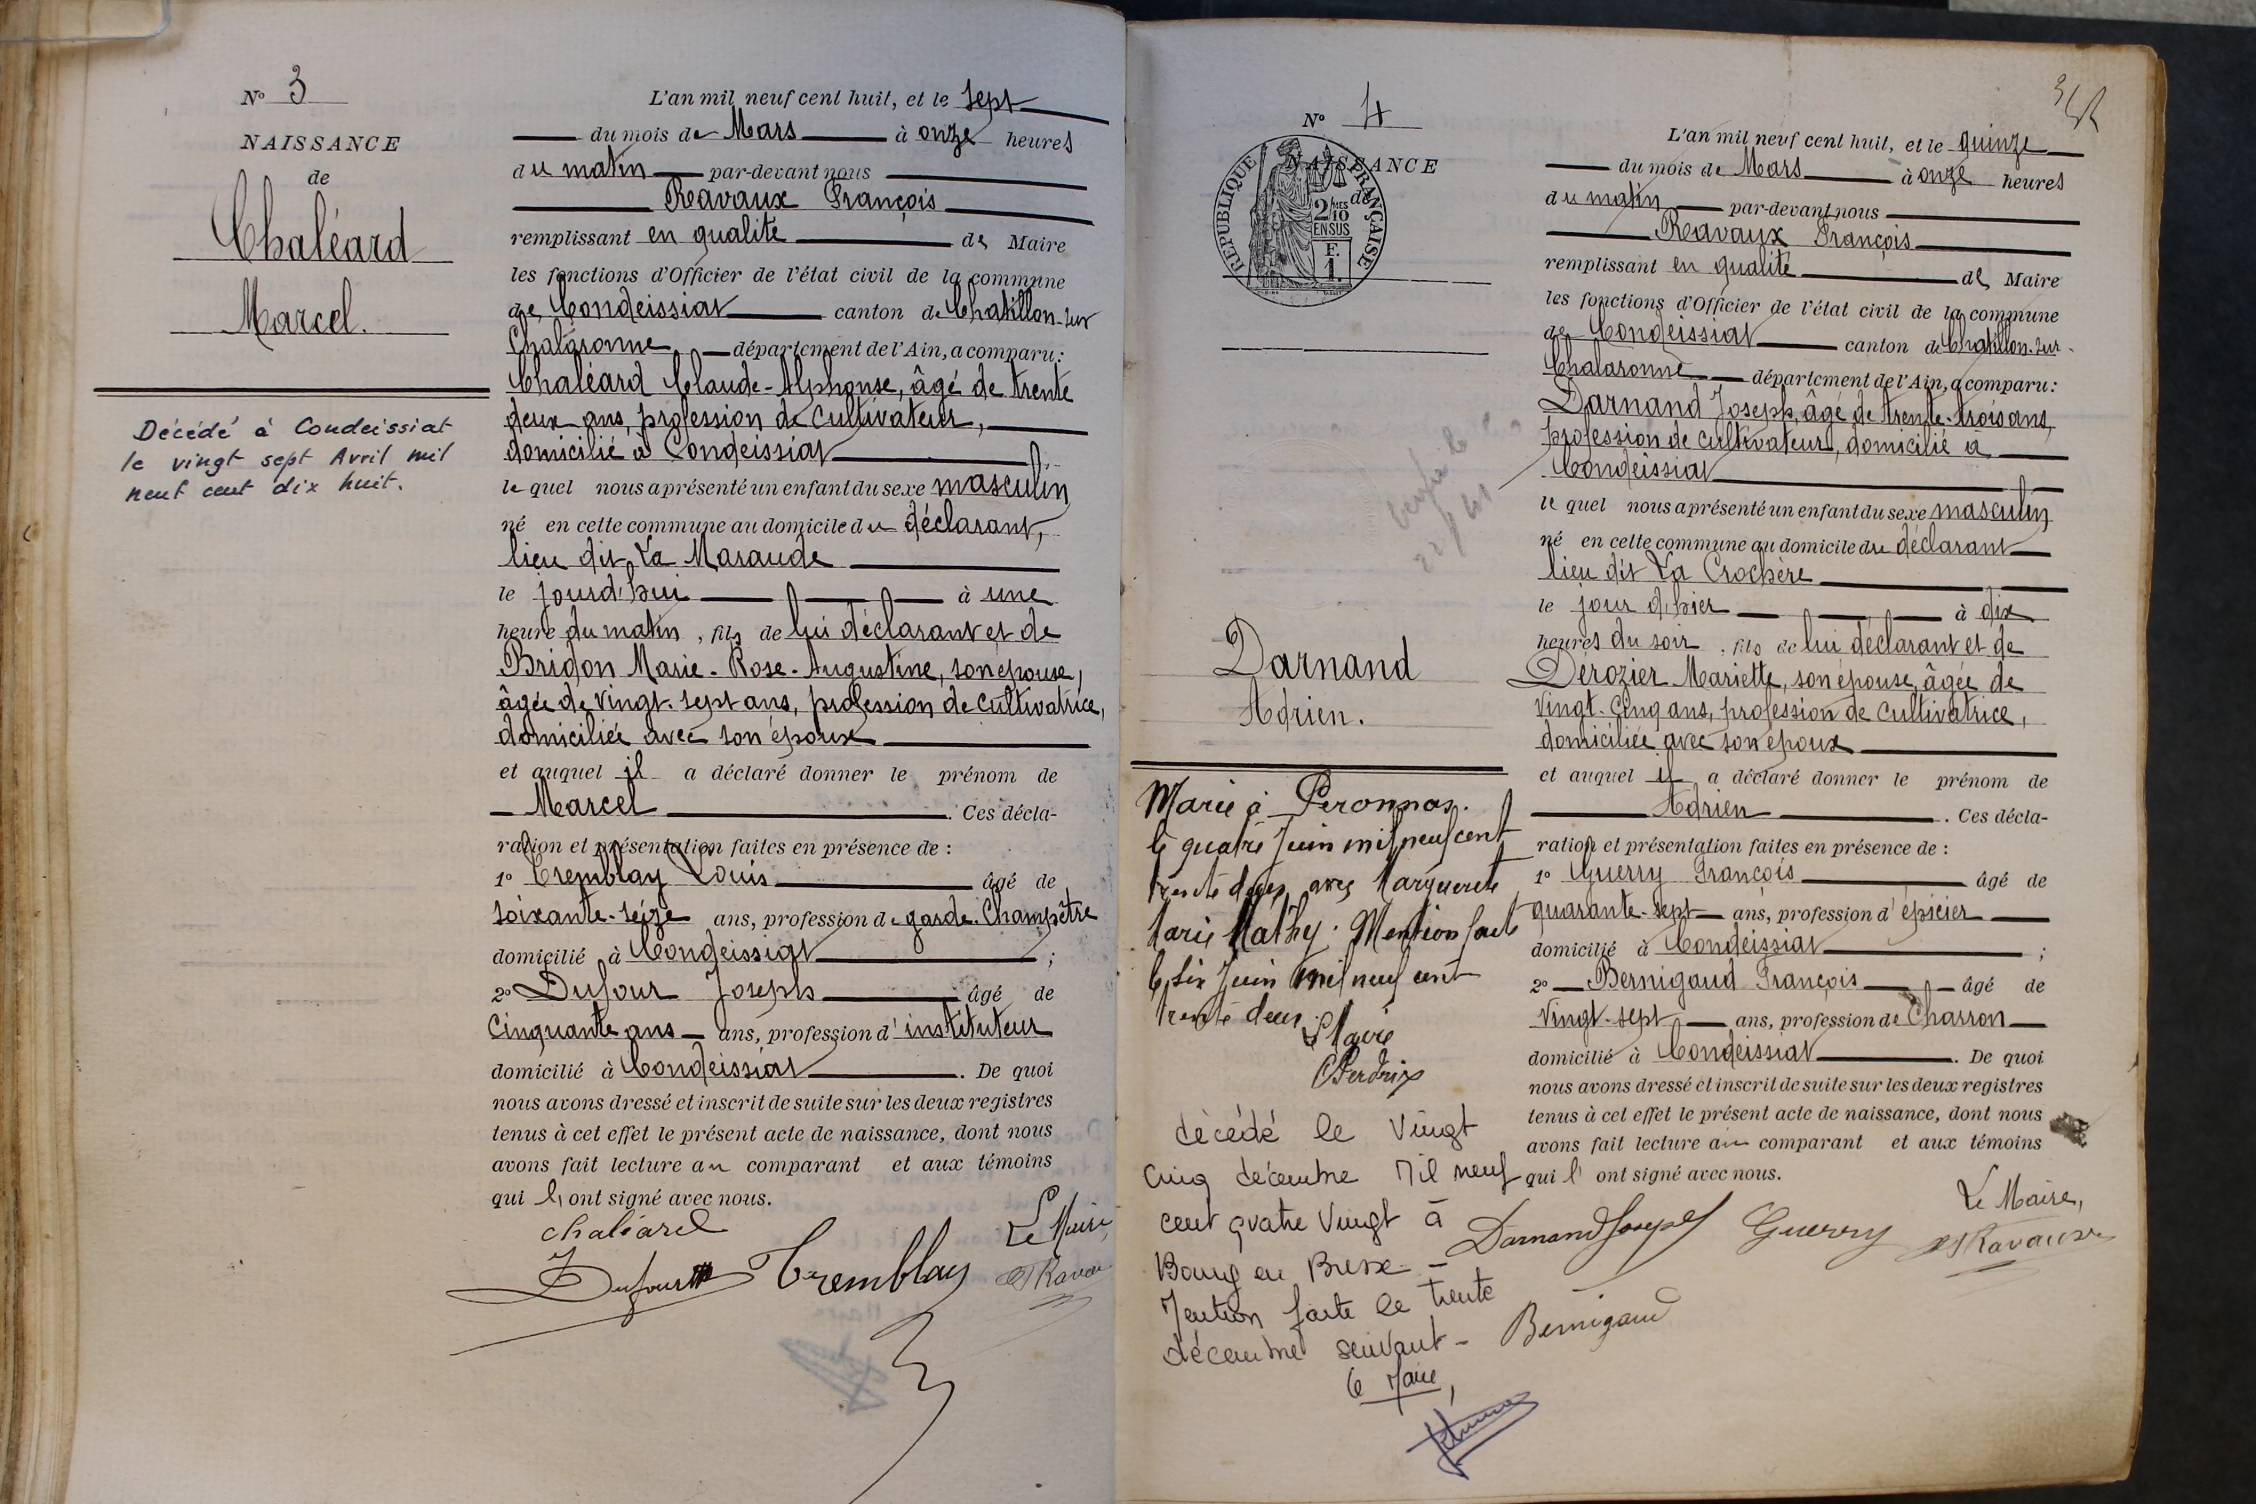 N° 3
NAISSANCE
de
Chaléard
Marcel.
Décédé à Condeissiat
le vingt sept Avril mil
neuf cent dix huit.
L'an mil neuf cent huit, et le sept
du mois de Mars à onze heures
du matin par-devant nous
Ravaux François
remplissant en qualité de Maire
les fonctions d'Officier de l'état civil de la commune
de Condeissiat canton de Chatillon-sur
Chalaronne département de l'Ain, a comparu:
Chaléard Claude-Alphonse, âgé de trente
deux ans, profession de cultivateur,
domicilié à Condeissiat
le quel nous a présenté un enfant du sexe masculin
né en cette commune au domicile du déclarant,
lieu dit La Maraude
le jourd'hui à une
heure du matin, fils de lui déclarant et de
Bridon Marie-Rose-Augustine, son épouse,
âgée de vingt-sept ans, profession de cultivatrice,
domiciliée avec son époux
et auquel il a déclaré donner le prénom de
Marcel. Ces décla-
ration et présentation faites en présence de :
1° Tremblay Louis âgé de
soixante-seize ans, profession de garde-Champêtre
domicilié à Condeissiat ;
2° Dufour Joseph âgé de
cinquante ans ans, profession d'instituteur
domicilié à Condeissiat. De quoi
nous avons dressé et inscrit de suite sur les deux registres
tenus à cet effet le présent acte de naissance, dont nous
avons fait lecture au comparant et aux témoins
qui l'ont signé avec nous.
chaléard
Le Maire,
Dufour Tremblay Ravaux
N° 4
NAISSANCE
de
RÉPUBLIQUE FRANÇAISE
2/10 MES
EN SUS
F.
1.
Darnand
Adrien.
Marié à Péronnas.
le quatre Juin mil neuf cent
trente deux avec Marguerite
Marie Mathy. Mention faite
le six Juin mil neuf cent
trente deux.
Le Maire
décédé le Vingt
Cinq décembre Mil neuf
cent quatre Vingt à
Bourg en Bresse -
Mention faite le trente
décembre suivant -
Le Maire,
L'an mil neuf cent huit, et le quinze
du mois de Mars à onze heures
du matin par-devant nous
Ravaux François
remplissant en qualité de Maire
les fonctions d'Officier de l'état civil de la commune
de Condeissiat canton de Chatillon-sur-
Chalaronne département de l'Ain, a comparu:
Darnand Joseph, âgé de trente-trois ans,
profession de cultivateur, domicilié à
Condeissiat
le quel nous a présenté un enfant du sexe masculin
né en cette commune au domicile du déclarant
lieu dit La Crochère
le jour d'hier à dix
heures du soir, fils de lui déclarant et de
Dérozier Mariette, son épouse, âgée de
vingt-cinq ans, profession de cultivatrice,
domiciliée avec son époux
et auquel il a déclaré donner le prénom de
Adrien. Ces décla-
ration et présentation faites en présence de :
1° Guerry François âgé de
quarante-sept ans, profession d'épicier
domicilié à Condeissiat ;
2° Bernigaud François âgé de
vingt-sept ans, profession de Charron
domicilié à Condeissiat. De quoi
nous avons dressé et inscrit de suite sur les deux registres
tenus à cet effet le présent acte de naissance, dont nous
avons fait lecture au comparant et aux témoins
qui l'ont signé avec nous.
Le Maire,
Darnand Joseph Guerry Ravaux
Bernigaud